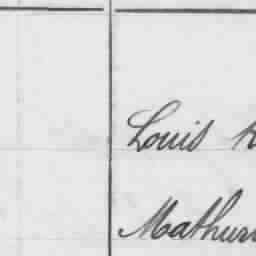 Louis
Mathuri